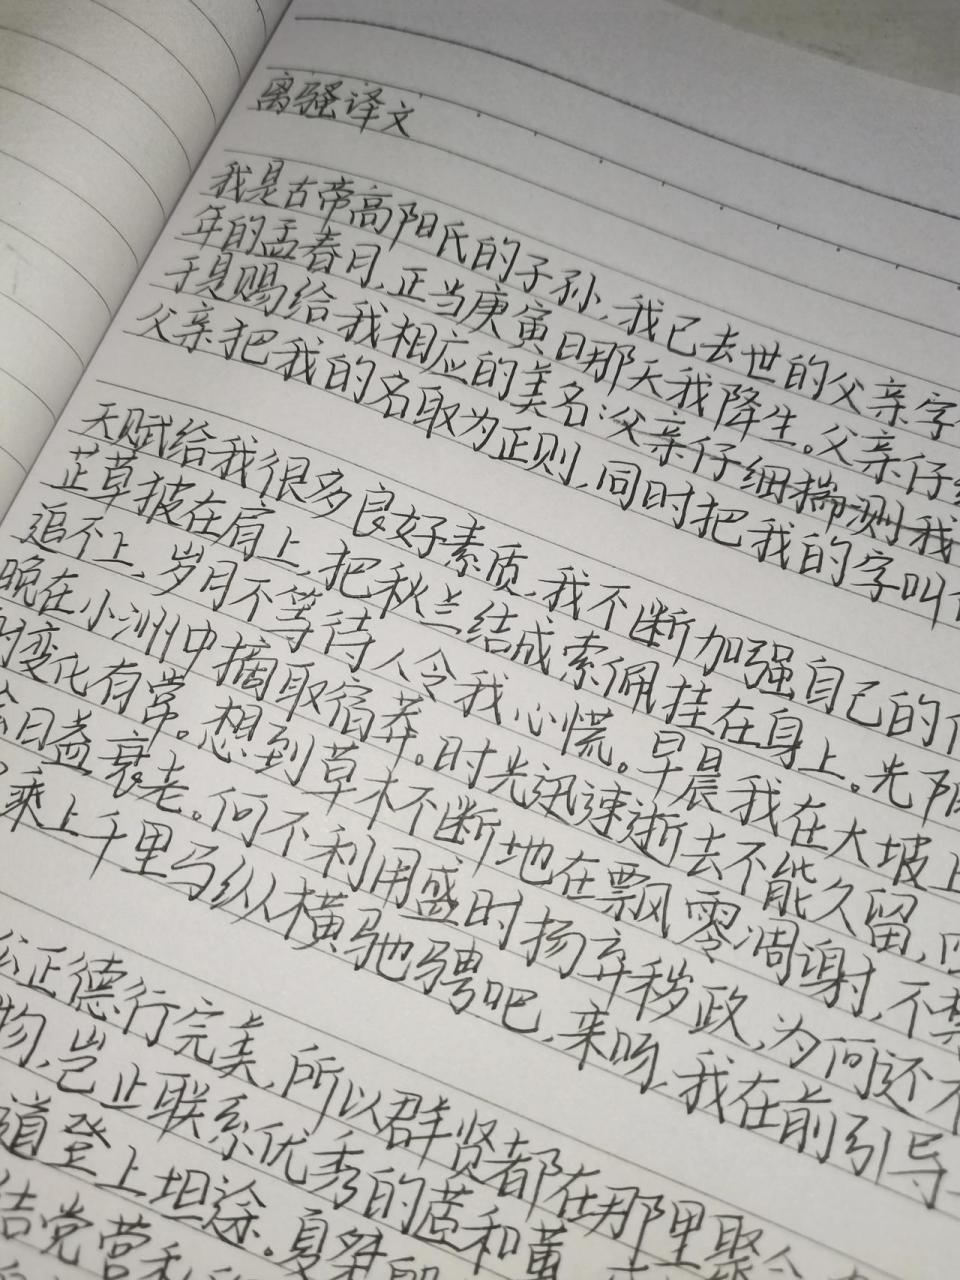 离骚译文
我是古帝高阳氏的子孙,我已去世的父亲字
年的孟春月,正当庚寅日那天我降生。父亲仔细
于是赐给我相应的美名:父亲仔细揣测我
父亲把我的名取为正则,同时把我的字叫
天赋给我很多良好素质,我不断加强自己的
芷草披在肩上,把秋兰结成索佩挂在身上。光阴
追不上,岁月不等待人令我心慌。早晨我在大坡上
晚在小洲中摘取宿莽。时光迅速逝去不能久留,
变化有常。想到草木不断地在飘零凋谢,不禁
日益衰老。何不利用盛时扬弃秽政,为何还不
乘上千里马纵横驰骋吧,来呀,我在前引导
公正德行完美,所以群贤都在那里聚会
物,岂止联系优秀的茝和蕙
道登上坦途。夏桀
结党营私